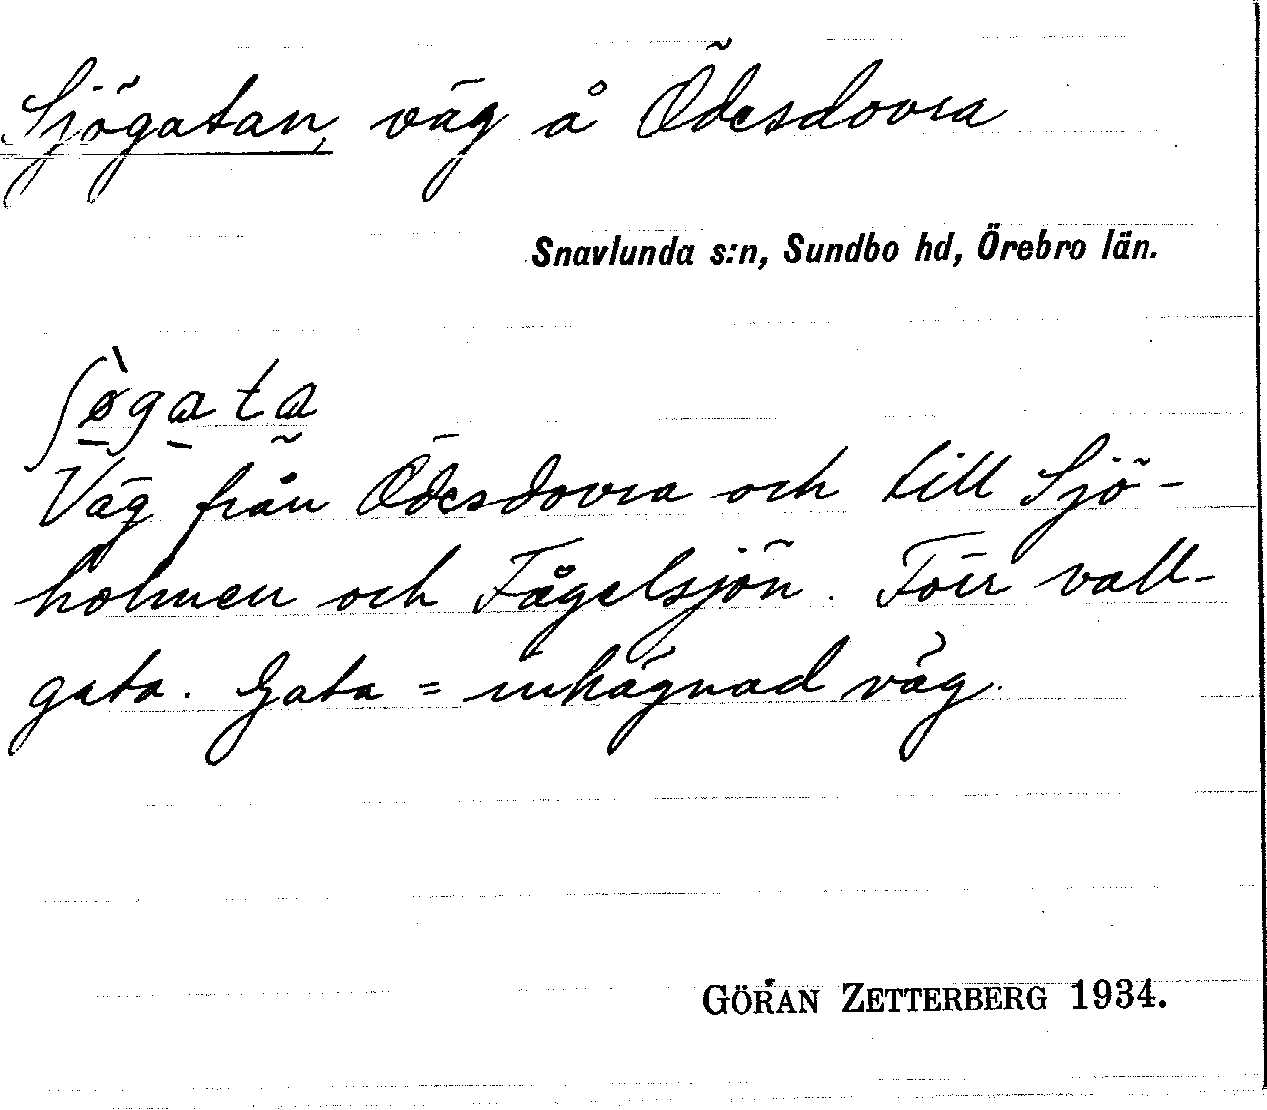 Sjögatan, väg å Ödesdovra
Snavlunda s:n, Sundbo hd, Örebro län.
ʃø̀gata
Väg från Ödesdovra och till Sjö-
holmen och Fågelsjön. Förr vall-
gata. Gata = inhägnad väg.
GÖRAN ZETTERBERG 1934.